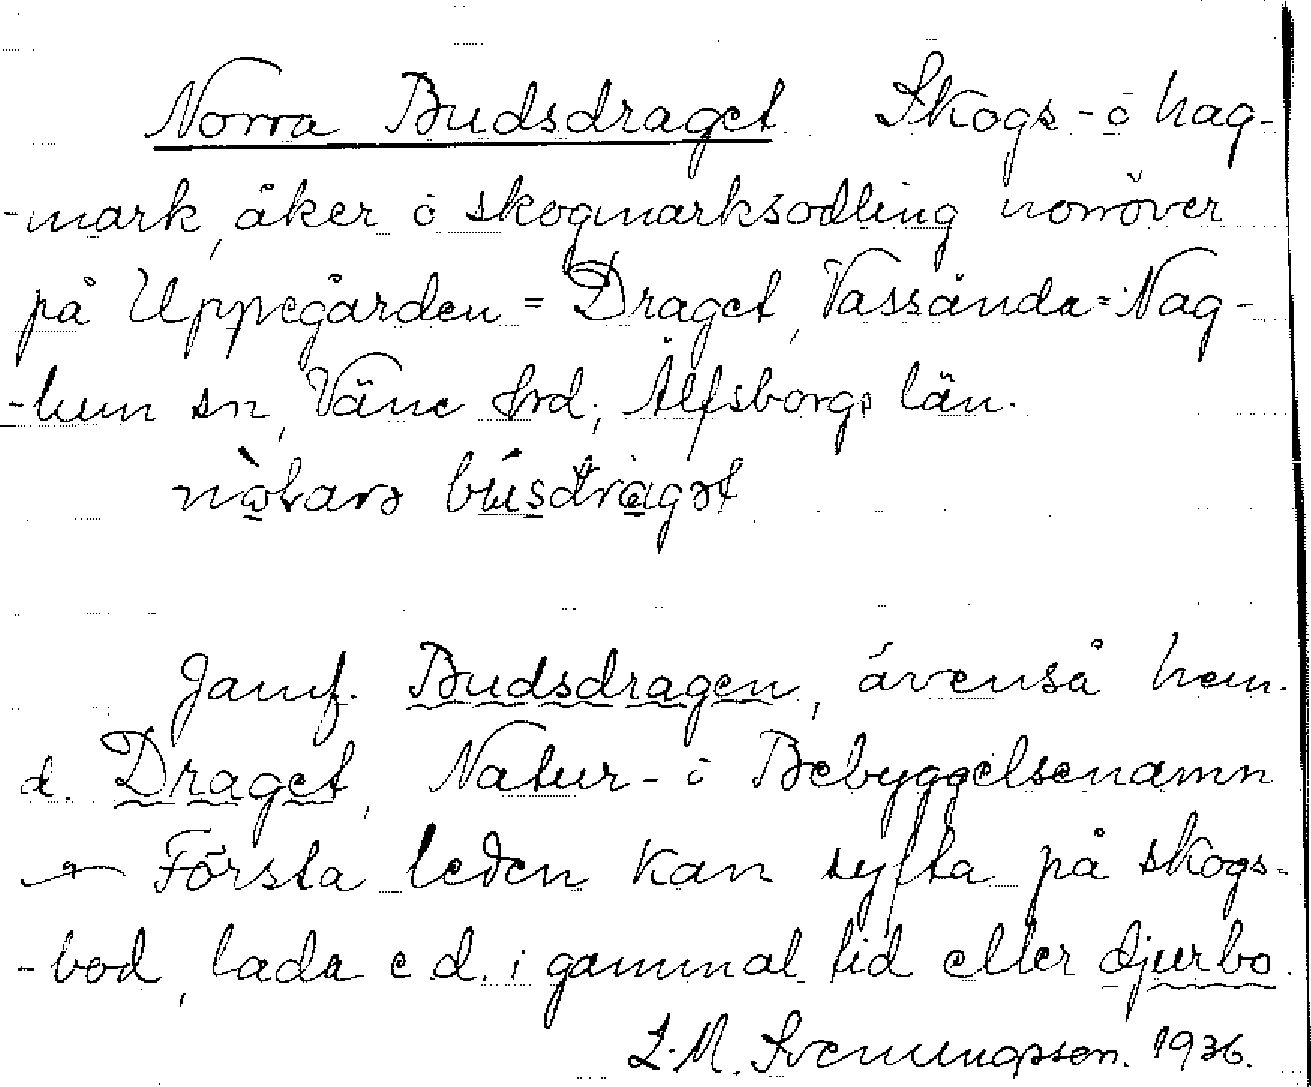 Norra Budsdraget Skogs- o hag-
-mark, åker o skogmarksodling norröver
på Uppegården = Draget, Vassända = Nag-
-lum sn, Väne hrd, Älfsborgs län.
busdraget
Jämf. Budsdragen, ävenså hem.
d. Draget, Natur- o Bebyggelsenamn
Första leden kan syfta på skogs-
-bod, lada e d. i gammal tid eller djurbo.
L.M. Svenungsson. 1936.